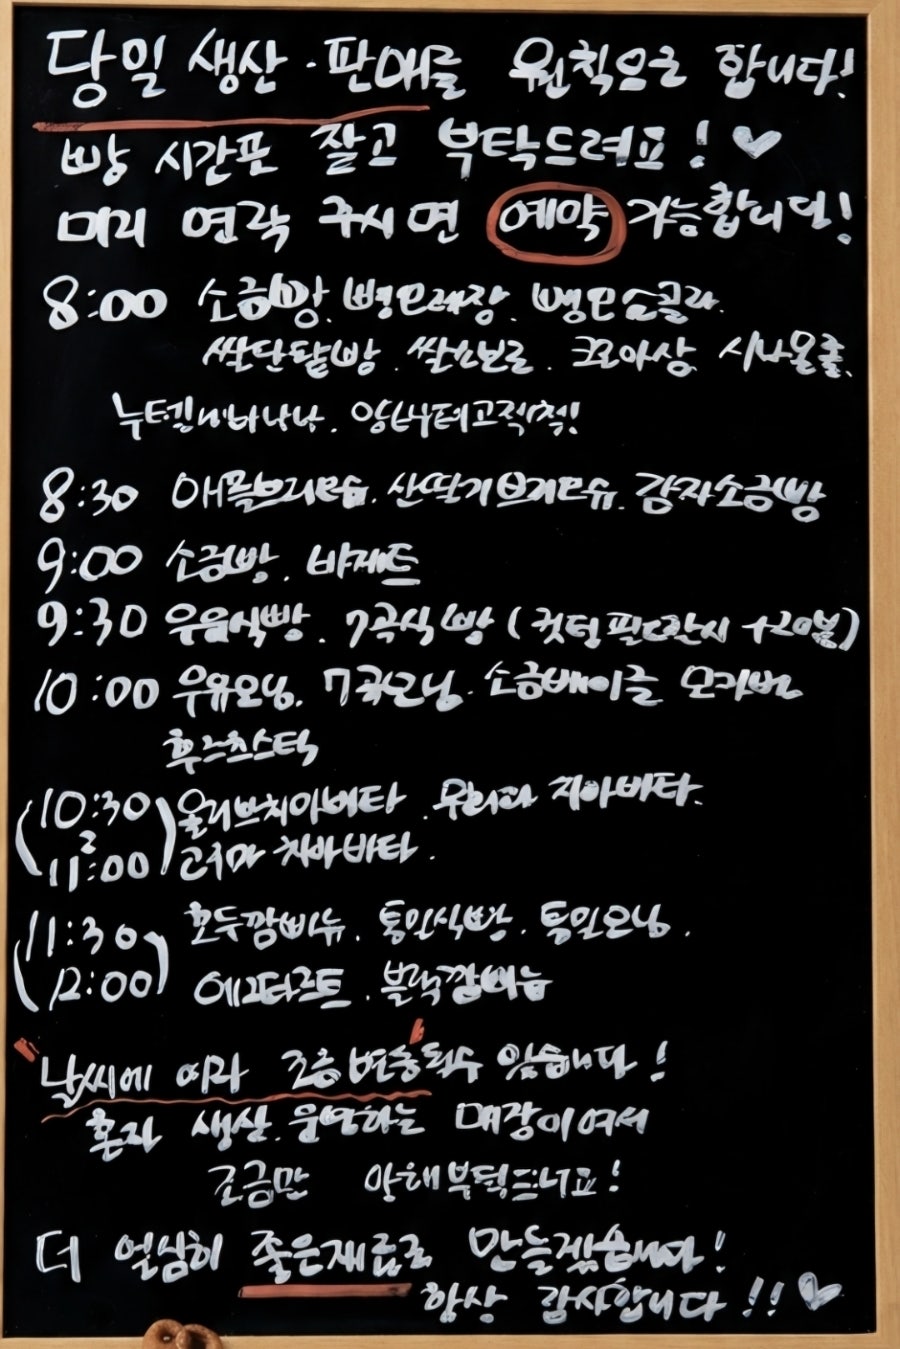 당일 생산 · 판매를 원칙으로 합니다!
빵 시간표 참고 부탁드려요!
미리 연락 주시면 예약 가능합니다!
8:00 소금빵. 명란
쌀단팥빵. 쌀소보로. 크로아상. 시나몬롤.
누텔라바나나.
8:30 애플브리오슈. 산딸기브리오슈. 감자소금빵
9:00 소금빵. 바게트
9:30 우유식빵. 7곡식빵 (컷팅 필요한시 +20분)
10:00 우유모닝. 7곡모닝. 소금베이글 모카번
후르츠스틱
(10:30 올리브치아바타. 무화과 치아바타.
11:00) 고구마 치아바타.
(11:30 호두깜빠뉴. 통밀식빵. 통밀모닝.
12:00) 에그타르트. 블랙깜빠뉴
"날씨에 따라 조금 변동"될수 있습니다!
혼자 생산. 운영하는 매장이여서
조금만 양해부탁드려요!
더 열심히 좋은재료로 만들겠습니다!
항상 감사합니다!!